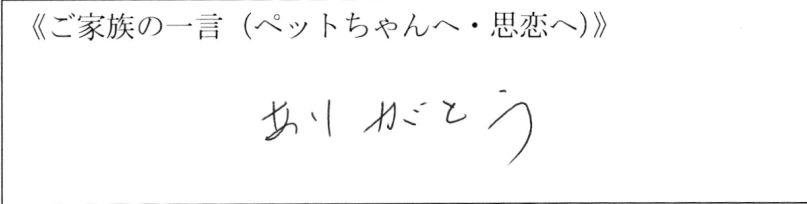 《ご家族の一言（ペットちゃんへ・思恋へ）》
ありがとう